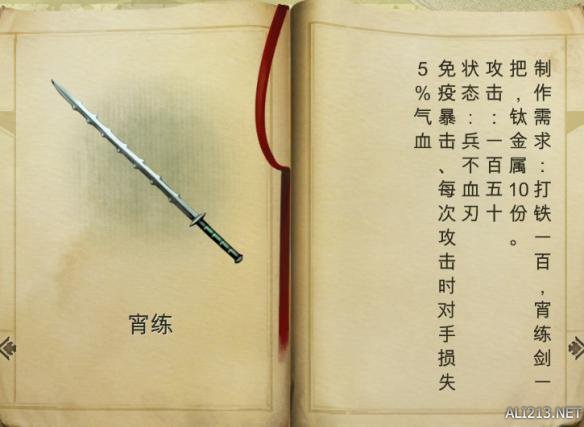 宵练
制作需求：打铁一百，宵练剑一
把，钛金属10份。
攻击：一百五十
状态：兵不血刃
免疫暴击、每次攻击时对手损失
5%气血
ALI213.NET